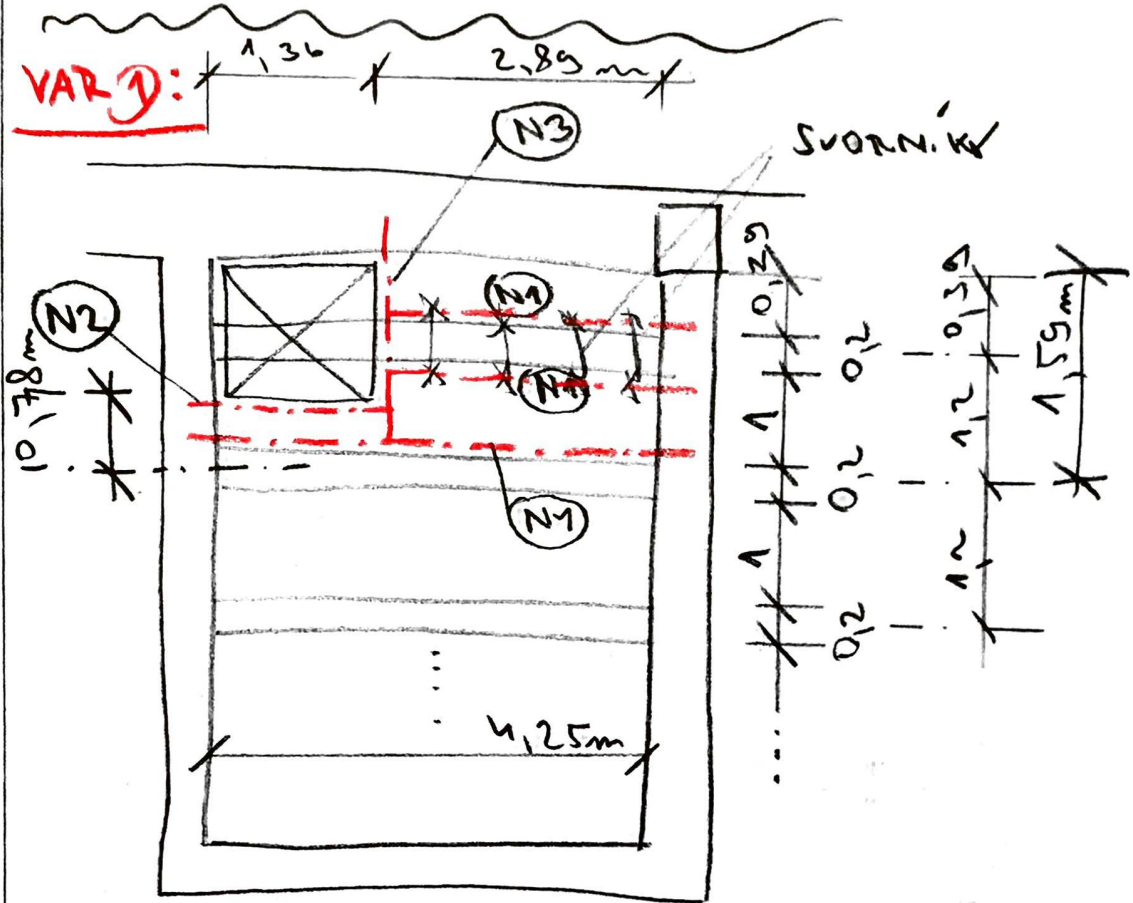 1,36
2,89 m
VAR D:
N3
SVORNÍKY
N2
N1
N1
N1
0,78m
4,25m
0,39
0,2
1
0,2
1
0,2
0,39
1,2
1,2
1,59m